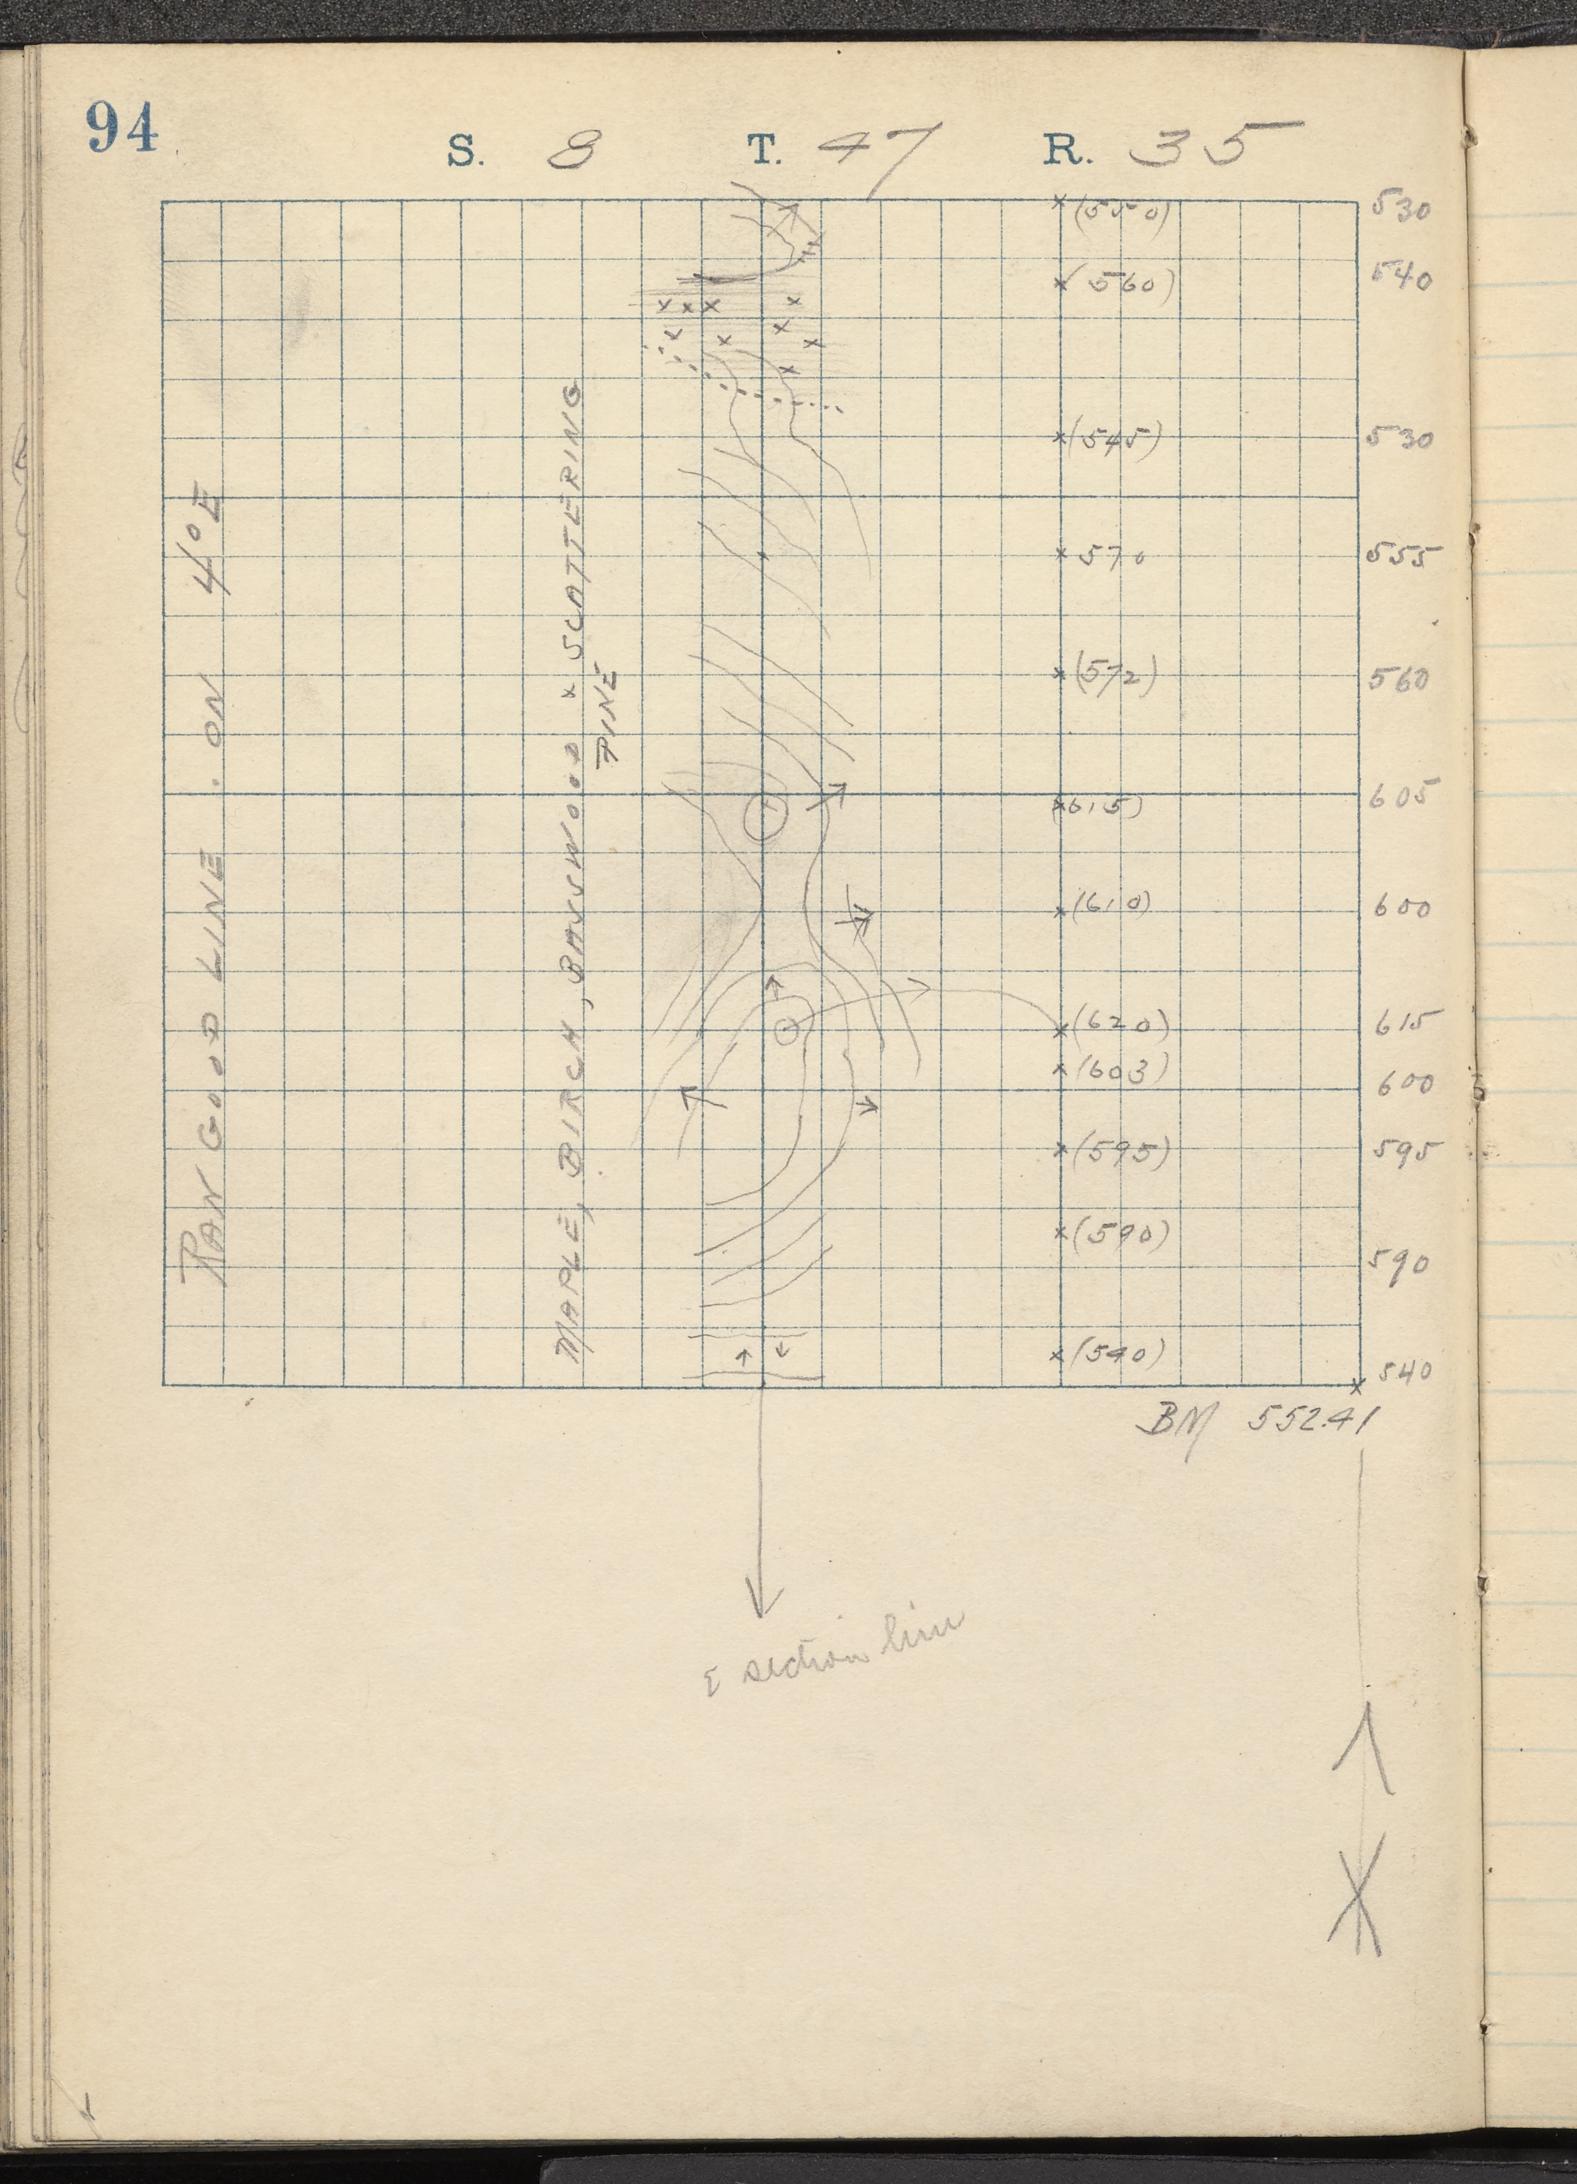 94
S. 8 T. 47 R. 35
(550) 530
(560) 540
(545) 530
570 555
(572) 560
615) 605
(610) 600
(620) 615
(603) 600
(595) 595
(590) 590
(540) 540
BM 552.41
RAN GOOD LINE . ON 4°E
MAPLE, BIRCH, BASSWOOD & SCATTERING
PINE
E section line